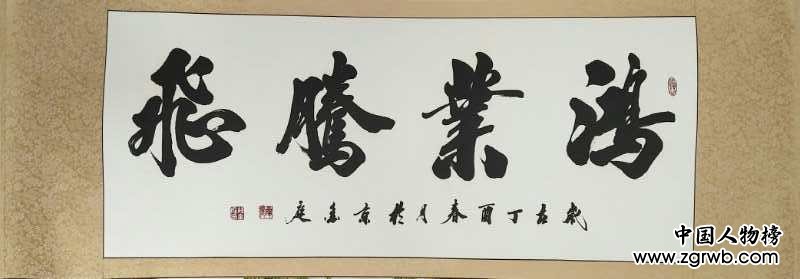 鴻業騰飛
歲在丁酉春月於京庭
中国人物榜
www.zgrwb.com